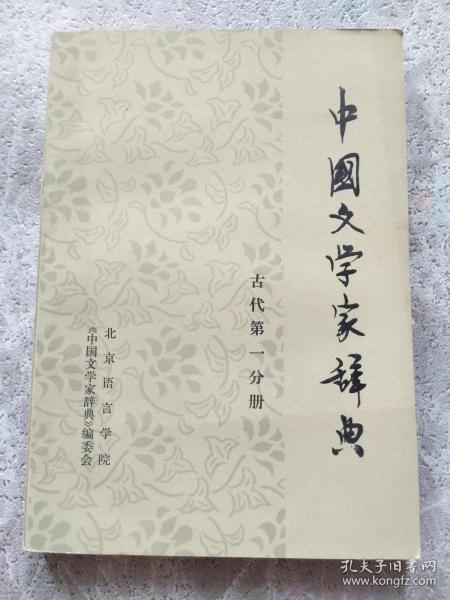 中國文学家辞典
古代第一分册
北京语言学院
《中国文学家辞典》编委会
孔夫子旧书网
www.kongfz.com